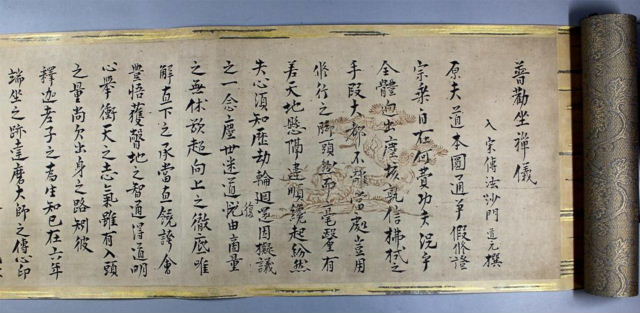 普勸坐禪儀
入宋傳法沙門道元撰
原夫道本圓通爭假修證
宗乘自在何費功夫況乎
全體逈出塵埃孰信拂拭之
手段大都不離當處豈用
修行之脚頭然而毫釐有
差天地懸隔違順纔起紛然
失心須知歷劫輪廻還因擬議
之一念塵世迷道復由商量
之無休欲超向上之徹底唯
解直下之承當直饒誇會
豐悟獲瞥地之智通得道明
心擧衝天之志氣雖有入頭
之量尚欠出身之路矧彼
釋迦老子之爲生知已在六年
端坐之跡達磨大師之傳心印